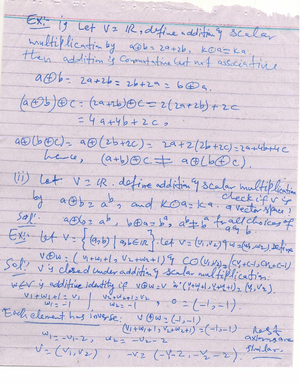 Ex:- i) Let V = ℝ, define addition & scalar
multiplication by a⊕b = 2a+2b, k⊙a = ka.
then addition is Commutative but not associative
a⊕b = 2a+2b = 2b+2a = b⊕a.
(a⊕b)⊕c = (2a+2b)⊕c = 2(2a+2b)+2c
= 4a+4b+2c,
a⊕(b⊕c) = a⊕(2b+2c) = 2a+2(2b+2c) = 2a+4b+4c
hence, (a+b)⊕c ≠ a⊕(b⊕c).
(ii) Let V = ℝ. define addition & scalar multiplication
by a⊕b = aᵇ, and k⊙a = ka. check if V is a vector space?
Sol: a⊕b = aᵇ, b⊕a = bᵃ, aᵇ ≠ bᵃ for all choices of a & b.
Ex:- Let V = {(a,b) | a,b∈ℝ}. Let v=(v₁,v₂) & w=(w₁,w₂) define
v⊕w = (v₁+w₁+1, v₂+w₂+1) &
Sol: V is closed under addition & scalar multiplication.
w∈V is additive identity if v⊕w = v
v₁+w₁+1 = v₁ | v₂+w₂+1 = v₂ , 0 = (-1,-1)
Each element has inverse: v⊕w = (-1,-1)
(v₁+w₁+1, v₂+w₂+1) = (-1,-1)
w₁ = -v₁-2, w₂ = -v₂-2. rest of axioms are similar.
v = (v₁,v₂), -v = (-v₁-2, -v₂-2).